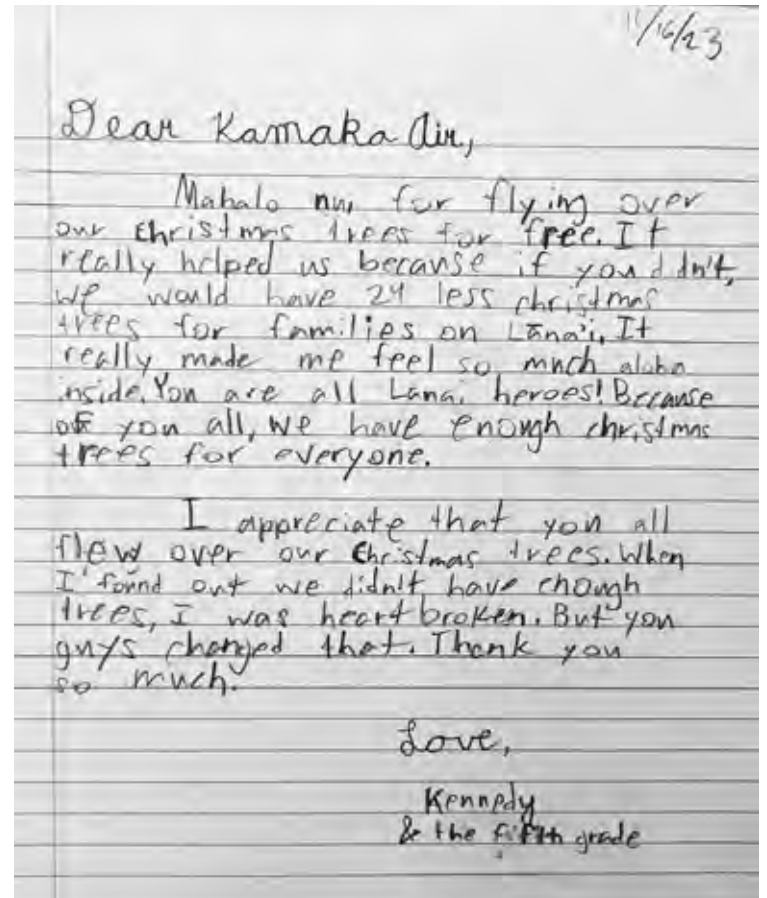 11/16/23
Dear Kamaka Air,
Mahalo nui for flying over
our christmas trees for free. It
really helped us because if you didn't,
we would have 24 less christmas
trees for families on Lāna'i. It
really made me feel so much aloha
inside. You are all Lanai heroes! Because
of you all, we have enough christmas
trees for everyone.
I appreciate that you all
flew over our Christmas trees. When
I found out we didn't have enough
trees, I was heart broken. But you
guys changed that. Thank you
so much.
Love,
Kennedy
& the fifth grade